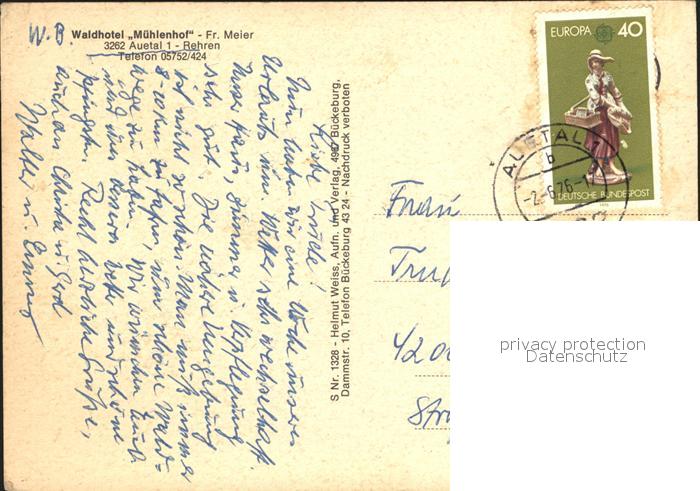 W. B.
Waldhotel „Mühlenhof" - Fr. Meier
3262 Auetal 1 - Rehren
Telefon 05752/424
Liebe
Nun haben wir eine Woche unseres
Urlaubs um. Wetter sehr wechselhaft.
Unser Haus, Zimmer u. Verpflegung
sehr gut. Die nähere Umgebung
ist nicht so schön. Man muß immer
8-10 km fahren, um schöne Wald-
wege zu haben. Wir wünschen Euch
und den Kindern
Pfingsten. Recht herzliche Grüße,
auch an u. Gerd
Walter u.
S Nr. 1328 - Helmut Weiss, Aufn. und Verlag, 4967 Bückeburg,
Dammstr. 10, Telefon Bückeburg 43 24 - Nachdruck verboten
EUROPA 40
DEUTSCHE BUNDESPOST
AUETAL 1
b
-2.-6.76-
Frau
420
privacy protection
Datenschutz